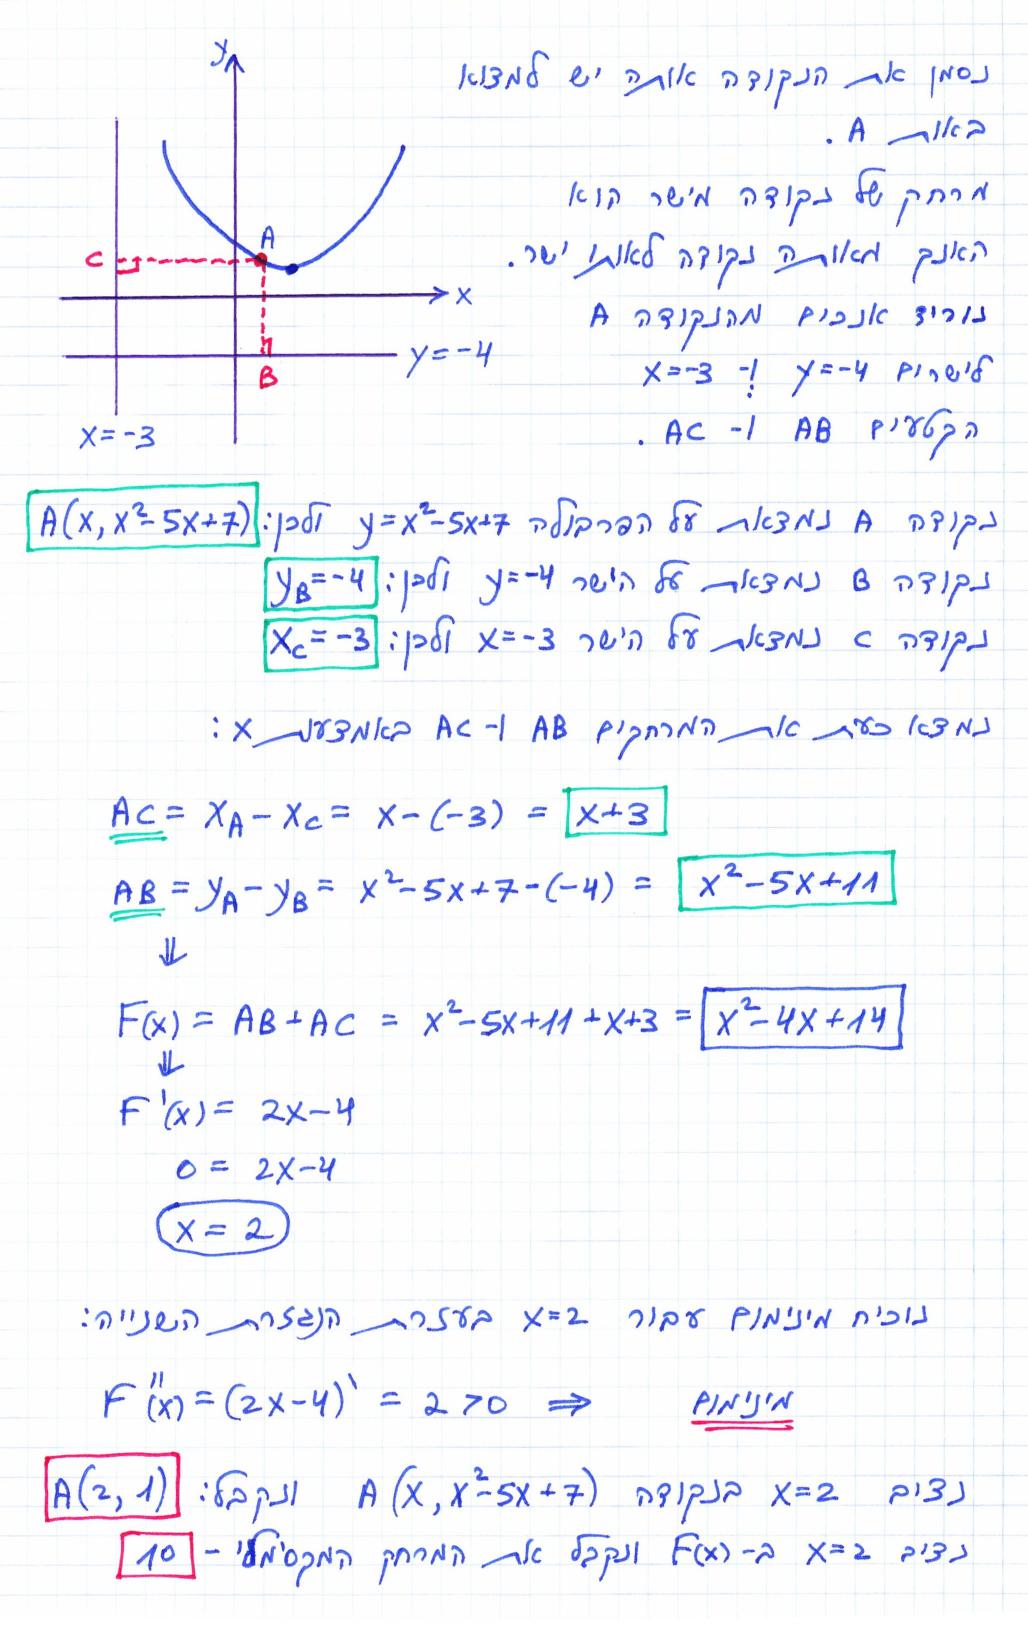 y
נסמן את הנקודה אותה יש למצוא
באות A .
מרחק של נקודה מישר הוא
האנק מאותה נקודה לאותו ישר.
נוריד אנכים מהנקודה A
לישרים y=-4 ו- x=-3
הקטעים AB ו- AC .
A
C
x
y=-4
B
x=-3
נקודה A נמצאת על הפרבולה y=x²-5x+7 ולכן: A(x, x²-5x+7)
נקודה B נמצאת על הישר y=-4 ולכן: y_B=-4
נקודה C נמצאת על הישר x=-3 ולכן: x_C=-3
נמצא כעת את המרחקים AB ו- AC באמצעות x :
AC = x_A - x_C = x-(-3) = x+3
AB = y_A - y_B = x²-5x+7-(-4) = x²-5x+11
⇓
F(x) = AB+AC = x²-5x+11+x+3 = x²-4x+14
⇓
F'(x) = 2x-4
0 = 2x-4
x = 2
נוכיח מינימום עבור x=2 בעזרת הנגזרת השנייה:
F''(x) = (2x-4)' = 2 > 0 ⇒ מינימום
נציב x=2 בנקודה A(x, x²-5x+7) ונקבל: A(2, 1)
נציב x=2 ב- F(x) ונקבל את המרחק המקסימלי - 10